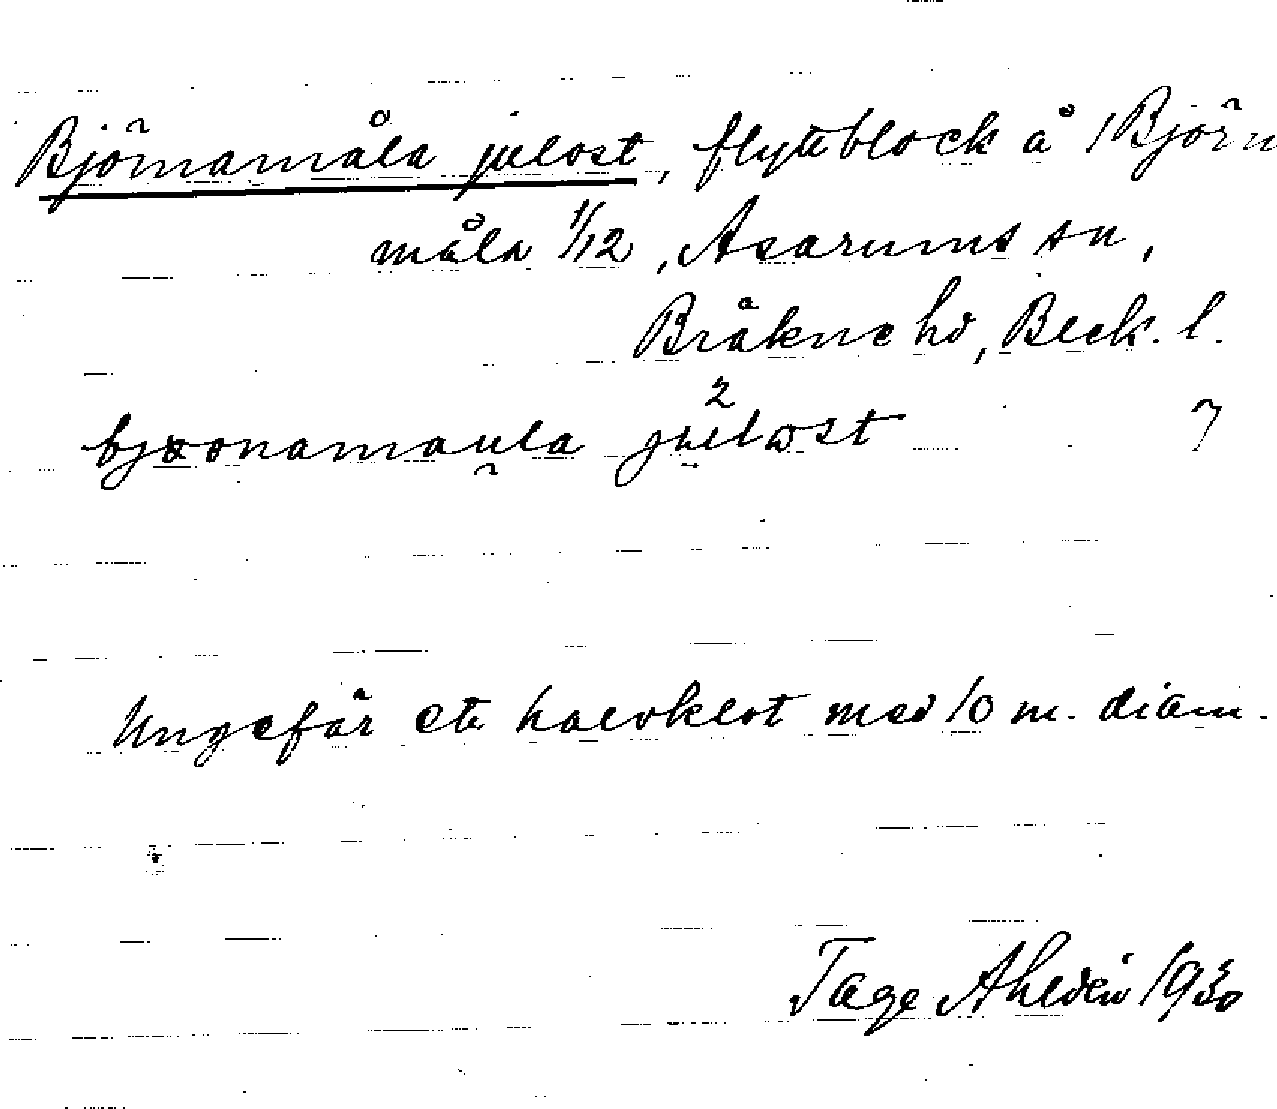 Björnamåla julost, flyttblock å 1 Björn
måla 1/12, Asarums sn,
Bräkne hd, Bleck. l.
Ungefär ett halvklot med 10 m. diam.
Tage Ahldén 1930